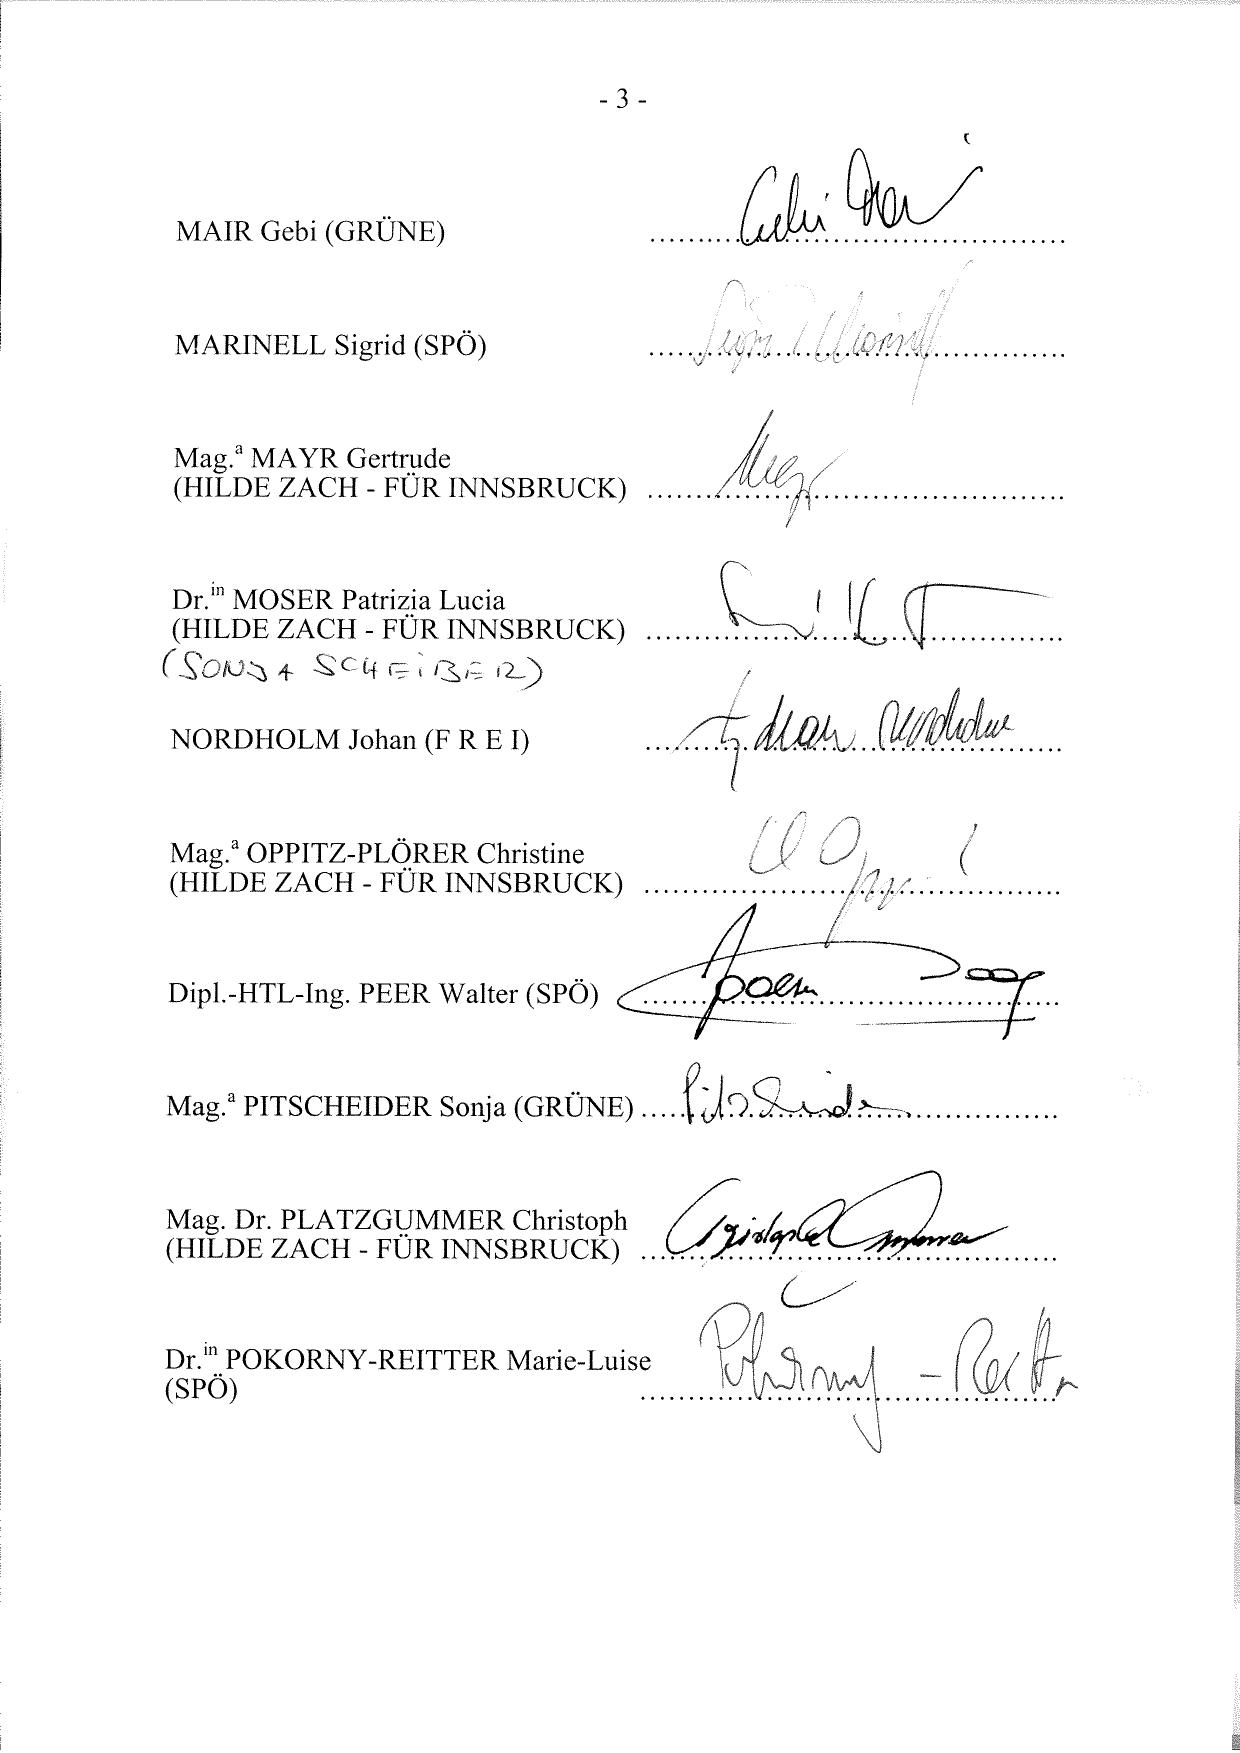 - 3 -
MAIR Gebi (GRÜNE) ..........Gebi Mair..........
MARINELL Sigrid (SPÖ) ....................
Mag.ª MAYR Gertrude
(HILDE ZACH - FÜR INNSBRUCK) ....................
Dr.in MOSER Patrizia Lucia
(HILDE ZACH - FÜR INNSBRUCK) ....................
(SONJA SCHEIBER)
NORDHOLM Johan (F R E I) ..........Johan Nordholm..........
Mag.ª OPPITZ-PLÖRER Christine
(HILDE ZACH - FÜR INNSBRUCK) ....................
Dipl.-HTL-Ing. PEER Walter (SPÖ) ....................
Mag.ª PITSCHEIDER Sonja (GRÜNE) ....................
Mag. Dr. PLATZGUMMER Christoph
(HILDE ZACH - FÜR INNSBRUCK) ....................
Dr.in POKORNY-REITTER Marie-Luise
(SPÖ) ..........Pokorny-Reitter..........